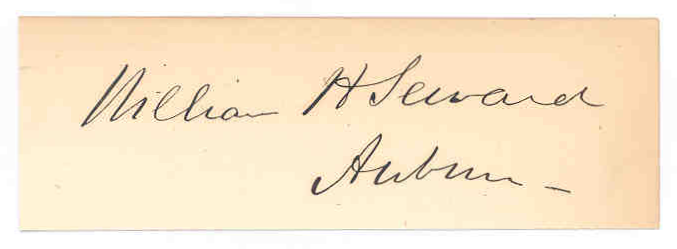 William H Seward
Auburn –